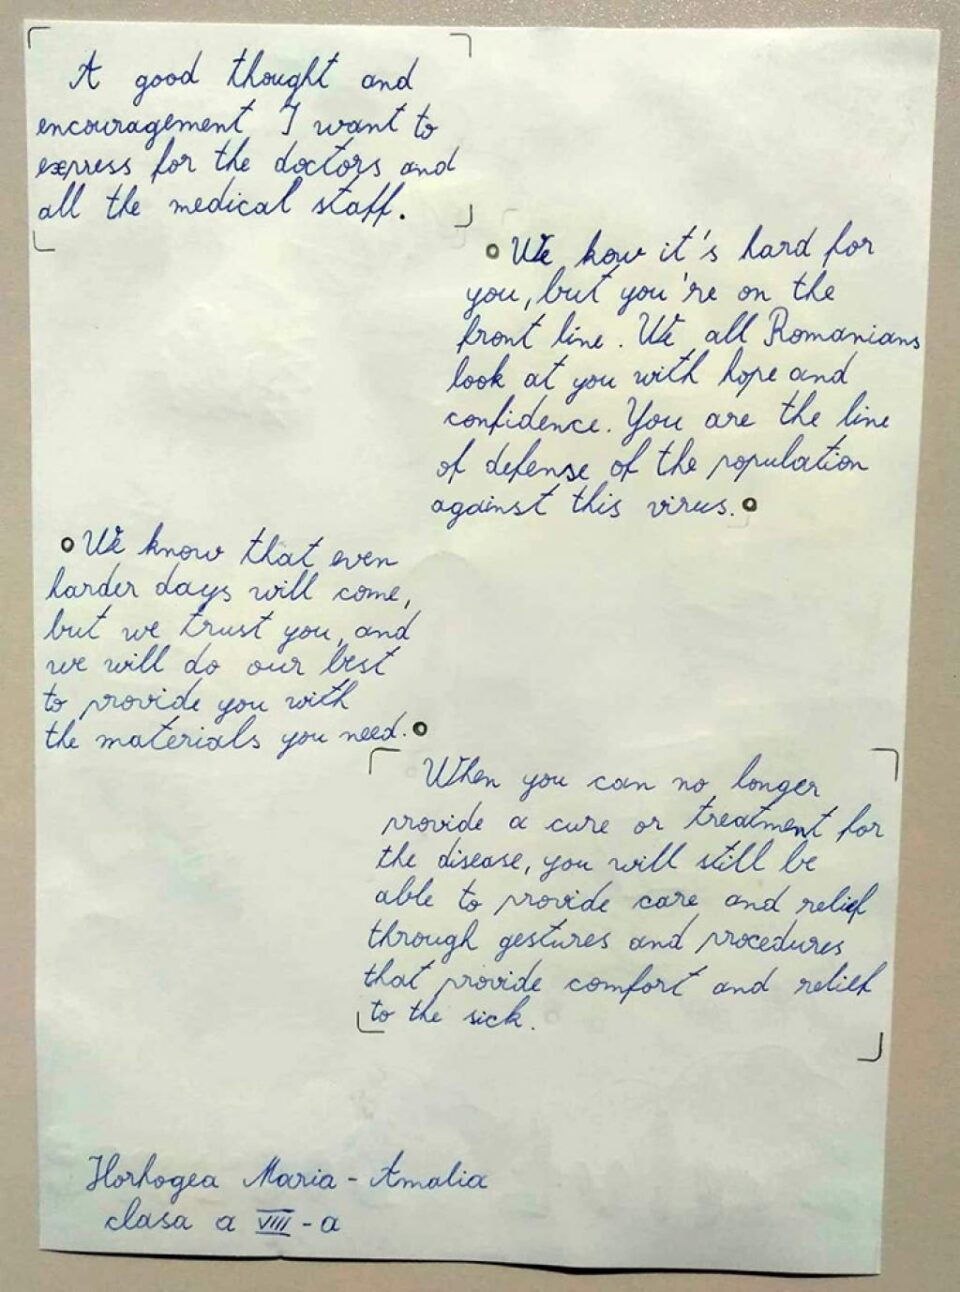 A good thought and
encouragement I want to
express for the doctors and
all the medical staff.
We kow it's hard for
you, but you're on the
front line. We all Romanians
look at you with hope and
confidence. You are the line
of defense of the population
against this virus.
We know that even
harder days will come,
but we trust you, and
we will do our best
to provide you with
the materials you need.
When you can no longer
provide a cure or treatment for
the disease, you will still be
able to provide care and relief
through gestures and procedures
that provide comfort and relief
to the sick.
Horhogea Maria-Amalia
clasa a VIII-a